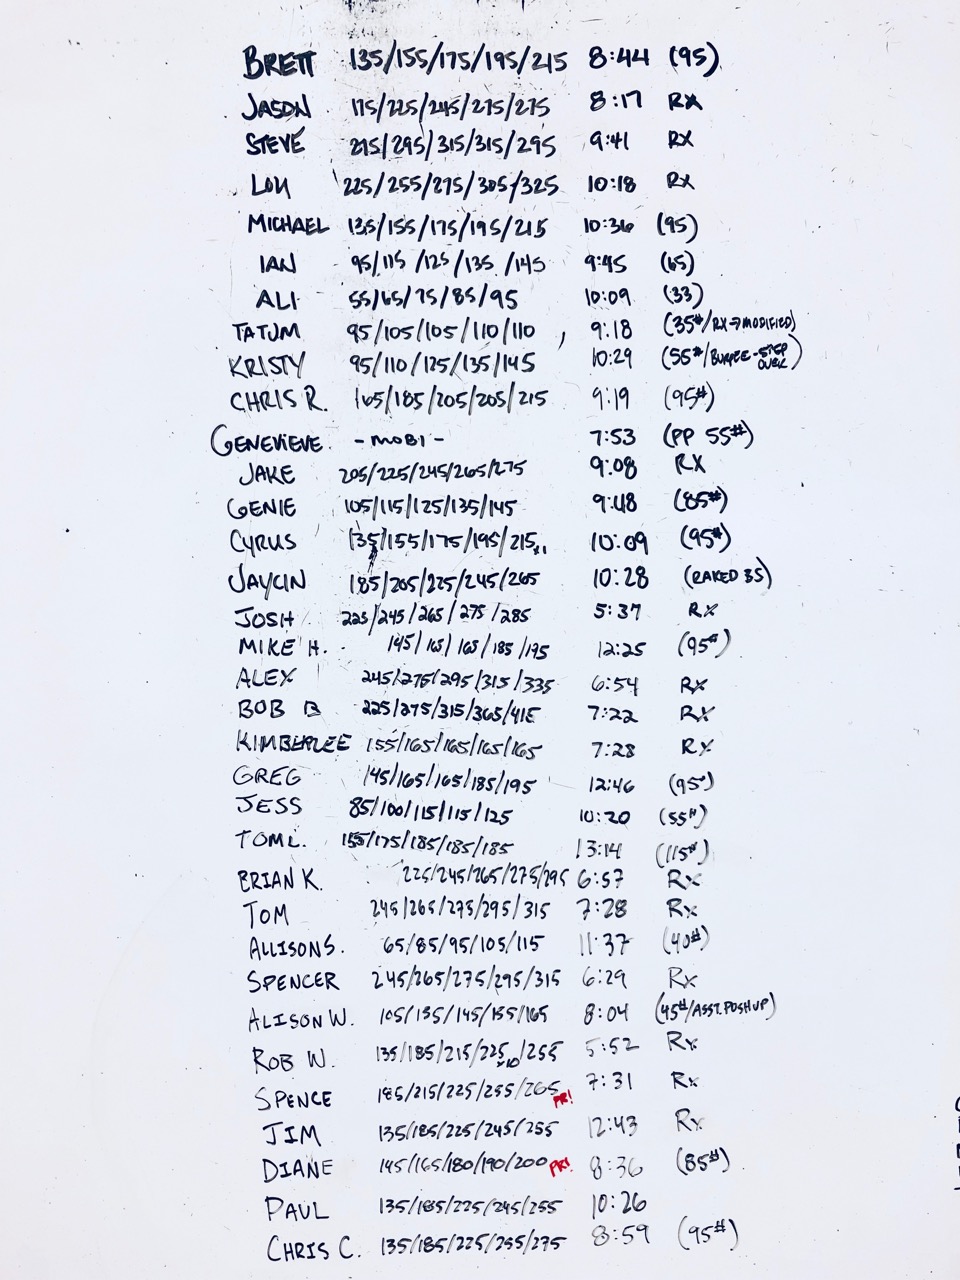 BRETT 135/155/175/195/215 8:44 (95)
JASON 175/225/245/275/275 8:17 RX
STEVE 275/295/315/315/295 9:41 RX
LOU 225/255/275/305/325 10:18 RX
MICHAEL 135/155/175/195/215 10:36 (95)
IAN 95/115/125/135/145 9:45 (65)
ALI 55/65/75/85/95 10:09 (33)
TATUM 95/105/105/110/110 , 9:18 (35#/RX→MODIFIED)
KRISTY 95/110/125/135/145 10:29 (55#/BURPEE-STEP OVER)
CHRIS R. 165/185/205/205/215 9:19 (95#)
GENEVIEVE. -MOBI- 7:53 (PP 55#)
JAKE 205/225/245/265/275 9:08 RX
GENIE 105/115/125/135/145 9:48 (85#)
CYRUS 135/155/175/195/215x1 10:09 (95#)
JAYCIN 185/205/225/245/265 10:28 (RAKED BS)
JOSH 225/245/265/275/285 5:37 RX
MIKE H. 145/165/165/185/195 12:25 (95#)
ALEX 245/275/295/315/335 6:54 RX
BOB B 225/275/315/365/415 7:22 RX
KIMBERLEE 155/165/165/165/165 7:28 RX
GREG 145/165/165/185/195 12:46 (95#)
JESS 85/100/115/115/125 10:20 (55#)
TOM L. 155/175/185/185/185 13:14 (115#)
BRIAN K. 225/245/265/275/295 6:57 Rx
TOM 245/265/275/295/315 7:28 Rx
ALLISON S. 65/85/95/105/115 11:37 (40#)
SPENCER 245/265/275/295/315 6:29 Rx
ALISON W. 105/135/145/155/165 8:04 (45#/ASST. PUSHUP)
ROB W. 135/185/215/225x10/255 5:52 Rx
SPENCE 185/215/225/255/265 PR! 7:31 Rx
JIM 135/185/225/245/255 12:43 Rx
DIANE 145/165/180/190/200 PR! 8:36 (85#)
PAUL 135/185/225/245/255 10:26
CHRIS C. 135/185/225/255/275 8:59 (95#)